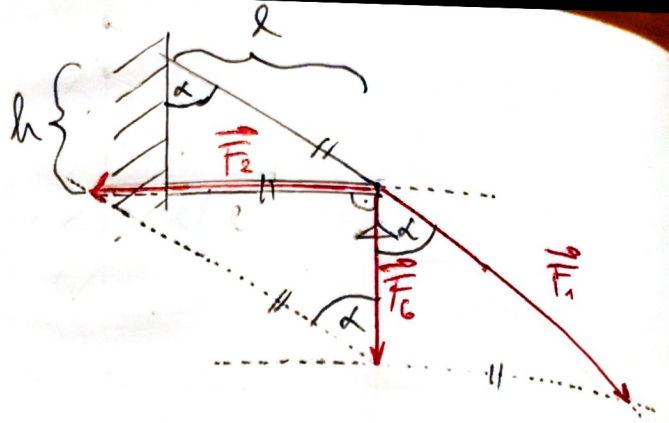 l
h
α
F₂
α
F₁
F_G
α